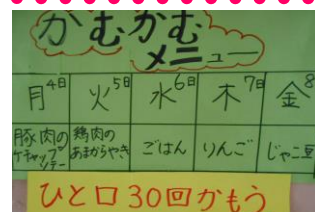 かむかむ
メニュー
月4日 火5日 水6日 木7日 金8
豚肉のケチャップソテー 鶏肉のあまからやき ごはん りんご じゃこ豆
ひと口30回かもう